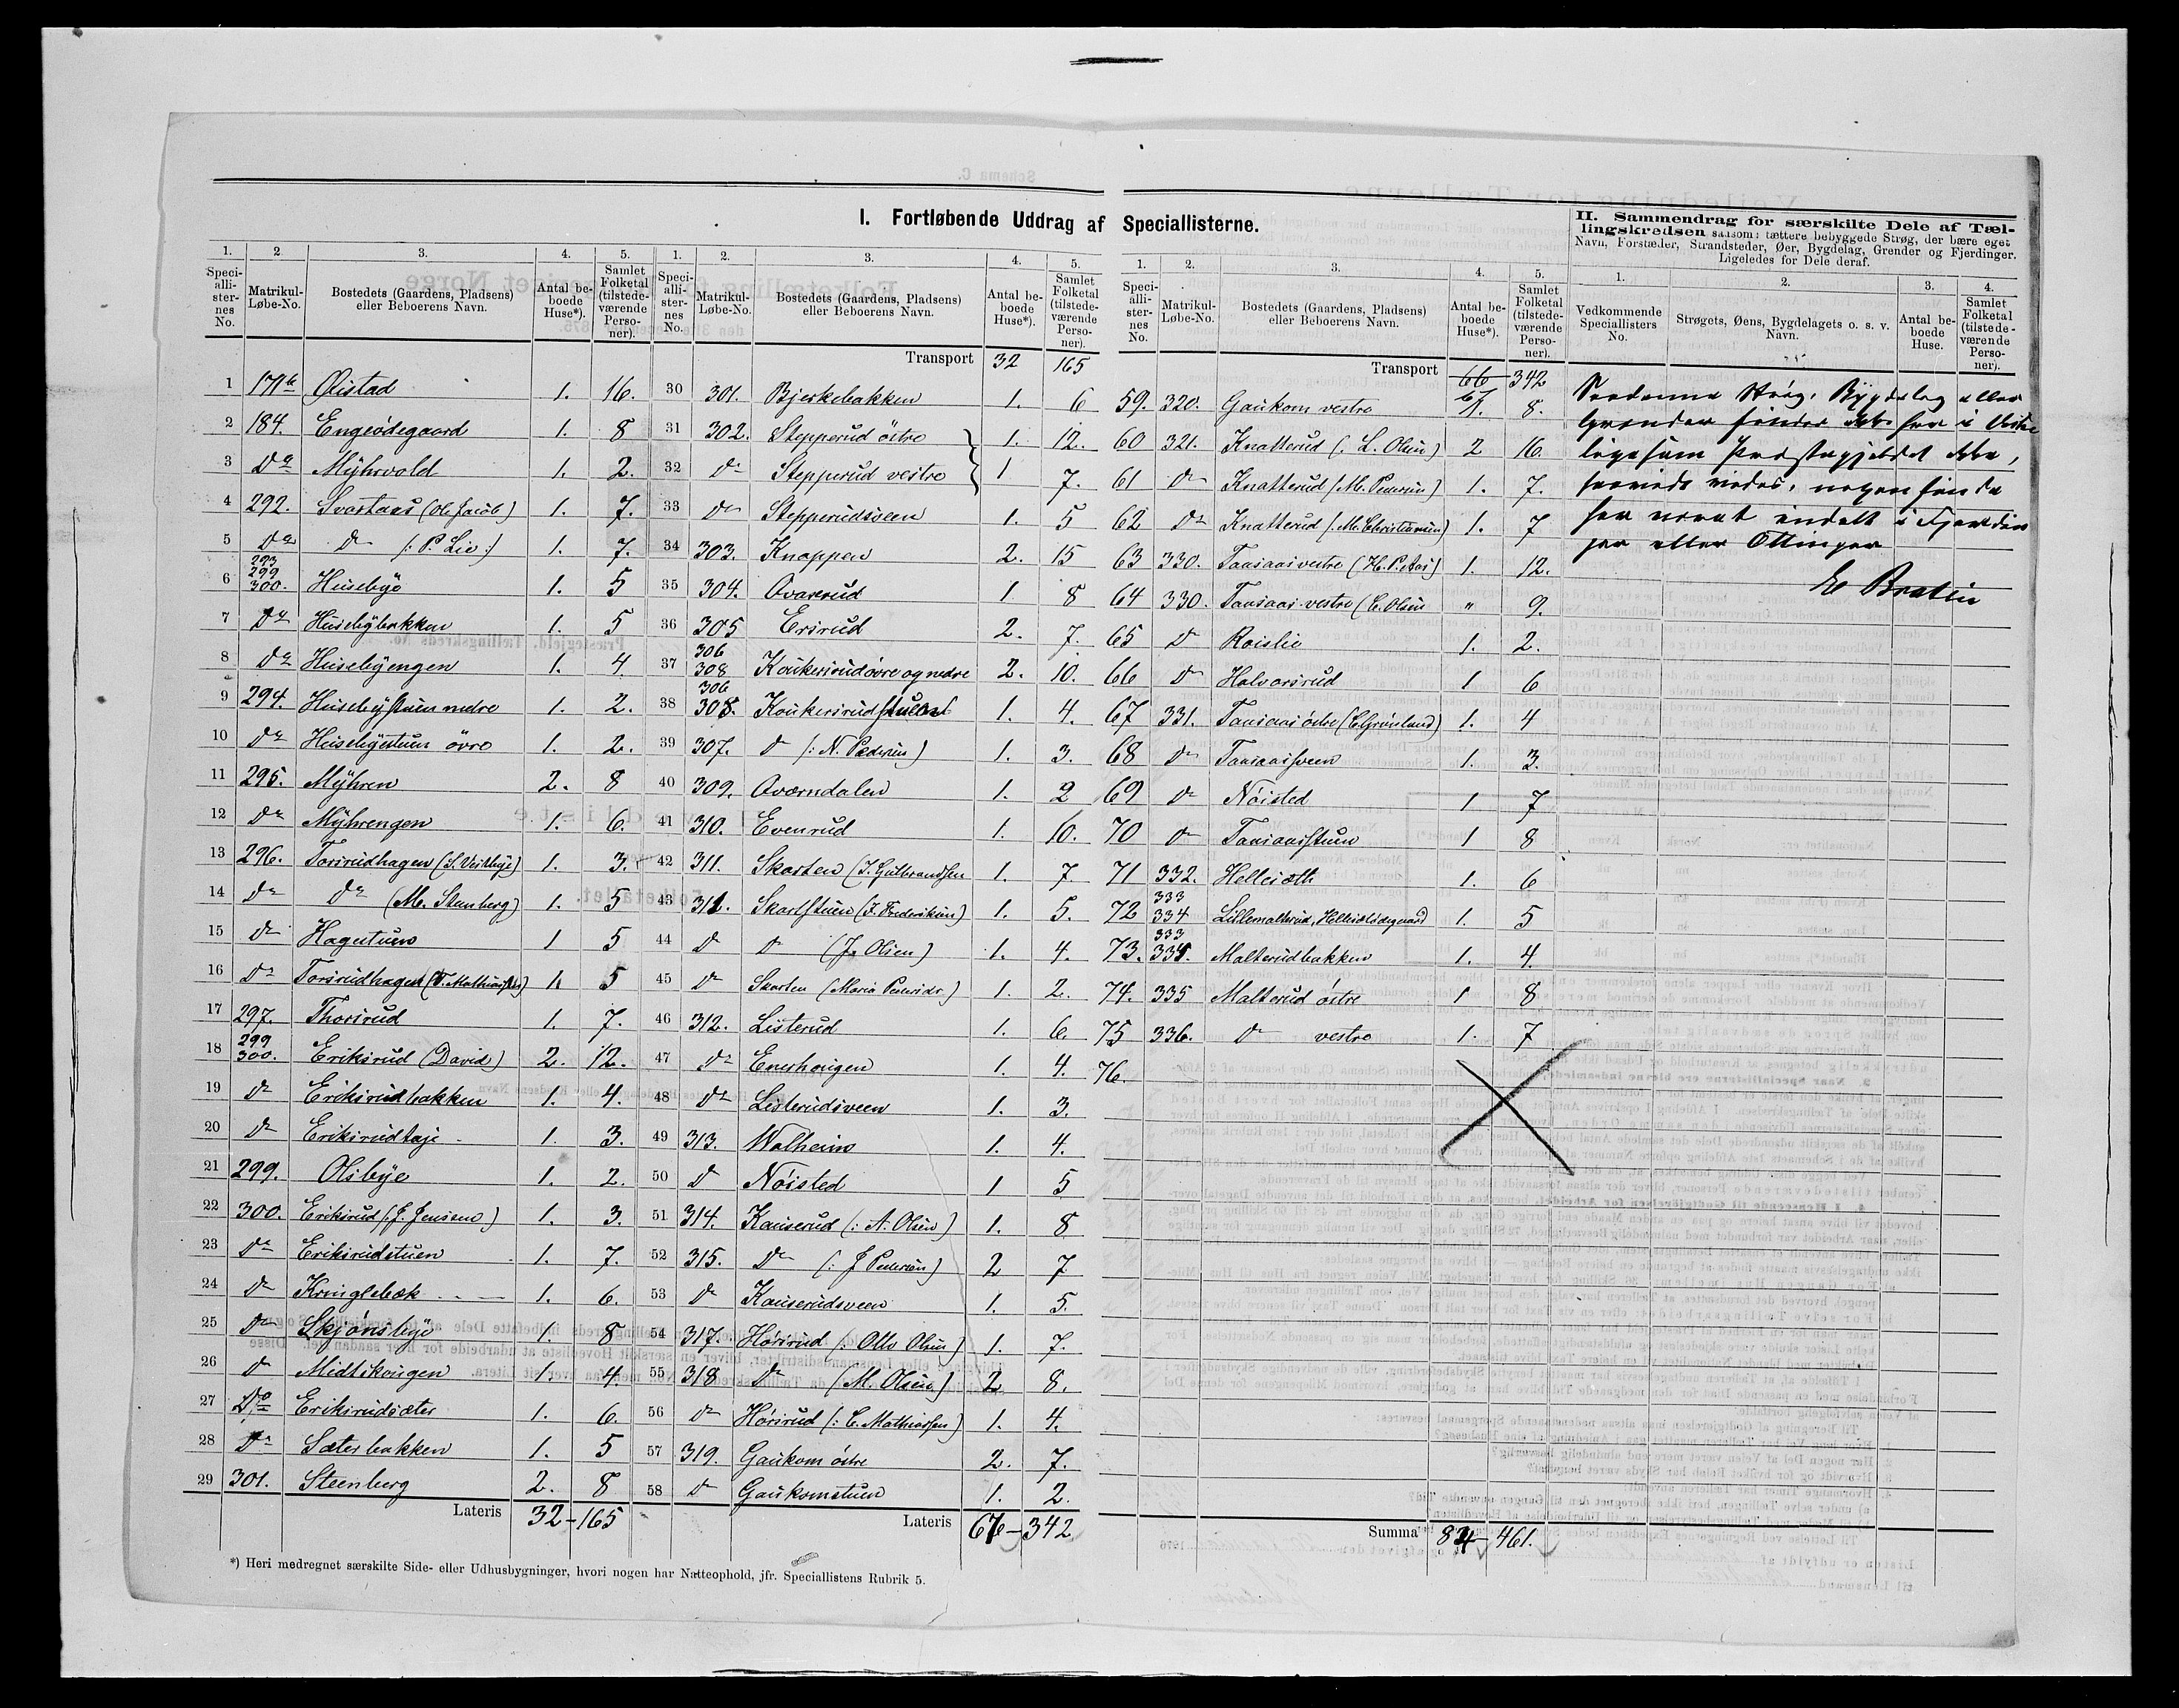 I. Fortløbende Uddrag af Speciallisterne.
1. 2. 3. 4. 5.
Speciallisternes No. Matrikul-Løbe-No. Bostedets (Gaardens, Pladsens) eller Beboerens Navn. Antal beboede Huse*). Samlet Folketal (tilstedeværende Personer).
1 171b Ølistad 1. 16.
2 184. Engeødegaard 1. 8
3 Do Myhrvold 1. 2.
4 292. Svartaas (Ole Jacob) 1. 7.
5 Do Do (: P. Lie :) 1. 7.
6 293 299 300. Husebye 1. 5
7 Do Husebybakken 1. 5
8 Do Husebyengen 1. 4.
9 294. Husebystuen nedre 1. 2.
10 Do Husebystuen övre 1. 2.
11 295. Myhren 2. 8
12 Do Myhrengen 1. 6.
13 296. Torsrudhagen (S. Vestbye) 1. 3.
14 Do Do (M. Stenberg) 1. 5
15 Do Hagestuen 1 5
16 Do Torsrudhagen (T. Mathias) 1. 5
17 297. Thorsrud 1. 7.
18 299 300. Eriksrud (David) 2. 12.
19 Do Eriksrudbakken 1. 4.
20 Do Eriksrudhaje 1. 3.
21 299. Olsbye 1. 2.
22 300. Eriksrud (: J. Jensen) 1. 3.
23 Do Eriksrudstuen 1. 7.
24 Do Kringlebæk 1. 6.
25 Do Skjönsbye 1. 8
26 Do Midtskougen 1. 4.
27 Do Eriksrudsæter 1. 6.
28 Do Sæterbakken 1. 5
29 301. Steenberg 2. 8
Lateris 32 - 165
*) Heri medregnet særskilte Side- eller Udhusbygninger, hvori nogen har Natteophold, jfr. Speciallistens Rubrik 5.
1. 2. 3. 4. 5.
Speciallisternes No. Matrikul-Løbe-No. Bostedets (Gaardens, Pladsens) eller Beboerens Navn. Antal beboede Huse*). Samlet Folketal (tilstedeværende Personer).
Transport 32 165
30 301. Bjerkebakken 1. 6
31 302. Stepperud östre 1. 12.
32 Do Stepperud vestre 1 7.
33 Do Stepperudsveen 1. 5
34 303. Knappen 2. 15
35 304. Ovarrud 1 8
36 305 Ersrud 2. 7.
37 306 308 Koukersrud övre og nedre 2. 10.
38 306 308. Koukersrudstuen 1. 4.
39 307. Do (: N. Pedersen) 1. 3.
40 309. Oværndalen 1. 2
41 310. Evenrud 1. 10.
42 311. Skarten (J. Gulbrandsen 1. 7
43 311. Skartstuen (J. Fredriksen) 1. 5.
44 Do Do (J. Olsen) 1. 4.
45 Do Skarten (Maria Pedersdr.) 1. 2.
46 312. Listerud 1. 6.
47 Do Enerhougen 1. 4.
48 Do Listerudsveen 1. 3.
49 313. Walheim 1. 4.
50 Do Nöisted 1 5
51 314. Kauserud (: A. Olsen) 1. 8
52 315. Do (: J Pedersen) 2 7
53 Do Kauserudsveen 1. 5.
54 317. Hörsrud (: Otto Olsen) 1. 7.
55 318 Do (M. Olsen) 2 8.
56 Do Hörsrud (: C. Mathiassen) 1. 4.
57 319. Gaukom östre 2. 7.
58 Do Gaukomstuen 1. 2.
Lateris 67 - 342
1. 2. 3. 4. 5.
Speciallisternes No. Matrikul-Løbe-No. Bostedets (Gaardens, Pladsens) eller Beboerens Navn. Antal beboede Huse*). Samlet Folketal (tilstedeværende Personer).
Transport 66 67 342
59. 320. Gaukom vestre 1. 8.
60 321. Knatterud (: L. Olsen) 2 16.
61 Do Knatterud (: M. Pedersen) 1. 7.
62 Do Knatterud (: M. Christensen) 1. 7
63 330. Taasaas vestre (H. P. Aas) 1. 12.
64 330. Taasaas vestre (C. Olsen " 9.
65 Do Roislie 1. 2.
66 Do Halvorsrud 1 6
67 331. Taasaas östre (C. Grönlund) 1. 4
68 Do Taasaassveen 1. 3.
69 Do Nöisted 1 7
70 Do Taasaasstuen 1 8
71 332. Hellesæth 1. 6
72 333 334 Lillemalterud, 1. 5
73. 333 334. Malterudbakken 1. 4.
74. 335 Malterud östre 1 8
75 336. Do vestre 1. 7
76.
Summa 84 - 461.
II. Sammendrag for særskilte Dele af Tællingskredsen saasom: tættere bebyggede Strøg, der bære eget Navn, Forstæder, Strandsteder, Øer, Bygdelag, Grender og Fjerdinger. Ligeledes for Dele deraf.
1. 2. 3. 4.
Vedkommende Speciallisters No. Strøgets, Øens, Bygdelagets o. s. v. Navn. Antal beboede Huse. Samlet Folketal (tilstedeværende Personer).
Saadanne Strøg, Bygdelag eller
Grender findes ikke her i
ligesom Præstegjeldet ikke,
saavidt vides, nogensinde
har været indelt i Fjerdin
ger eller Ottinger
E Bratlie